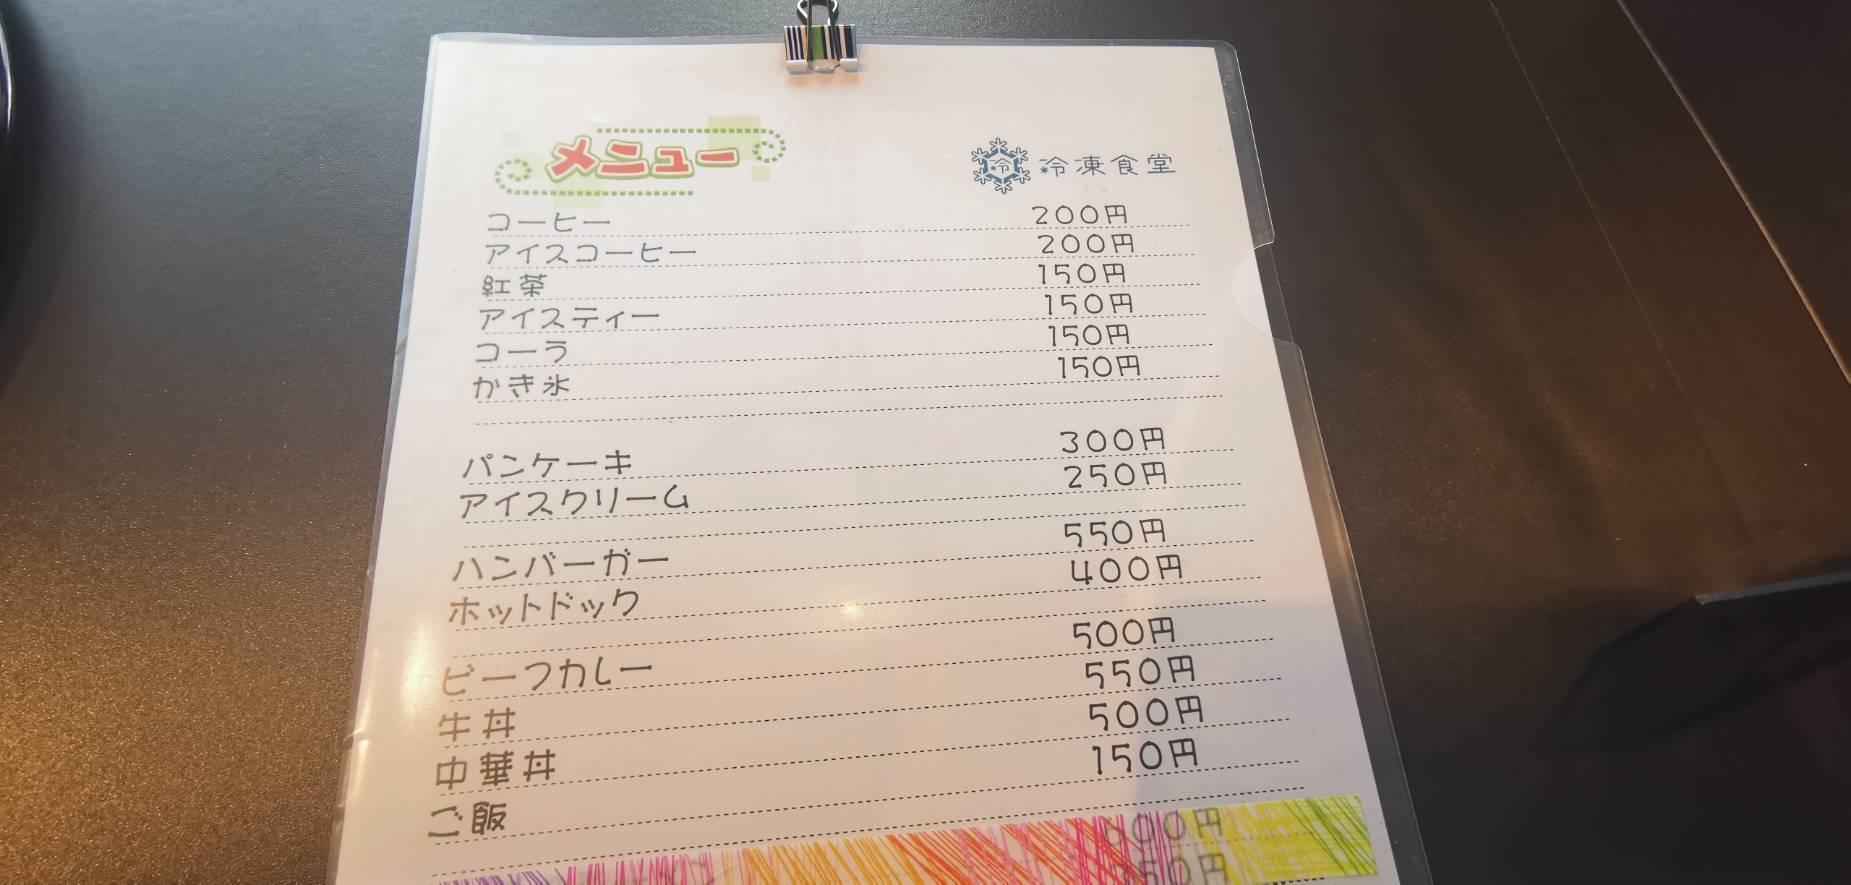 メニュー
冷 冷凍食堂
コーヒー 200円
アイスコーヒー 200円
紅茶 150円
アイスティー 150円
コーラ 150円
かき氷 150円
パンケーキ 300円
アイスクリーム 250円
ハンバーガー 550円
ホットドック 400円
ビーフカレー 500円
牛丼 550円
中華丼 500円
ご飯 150円